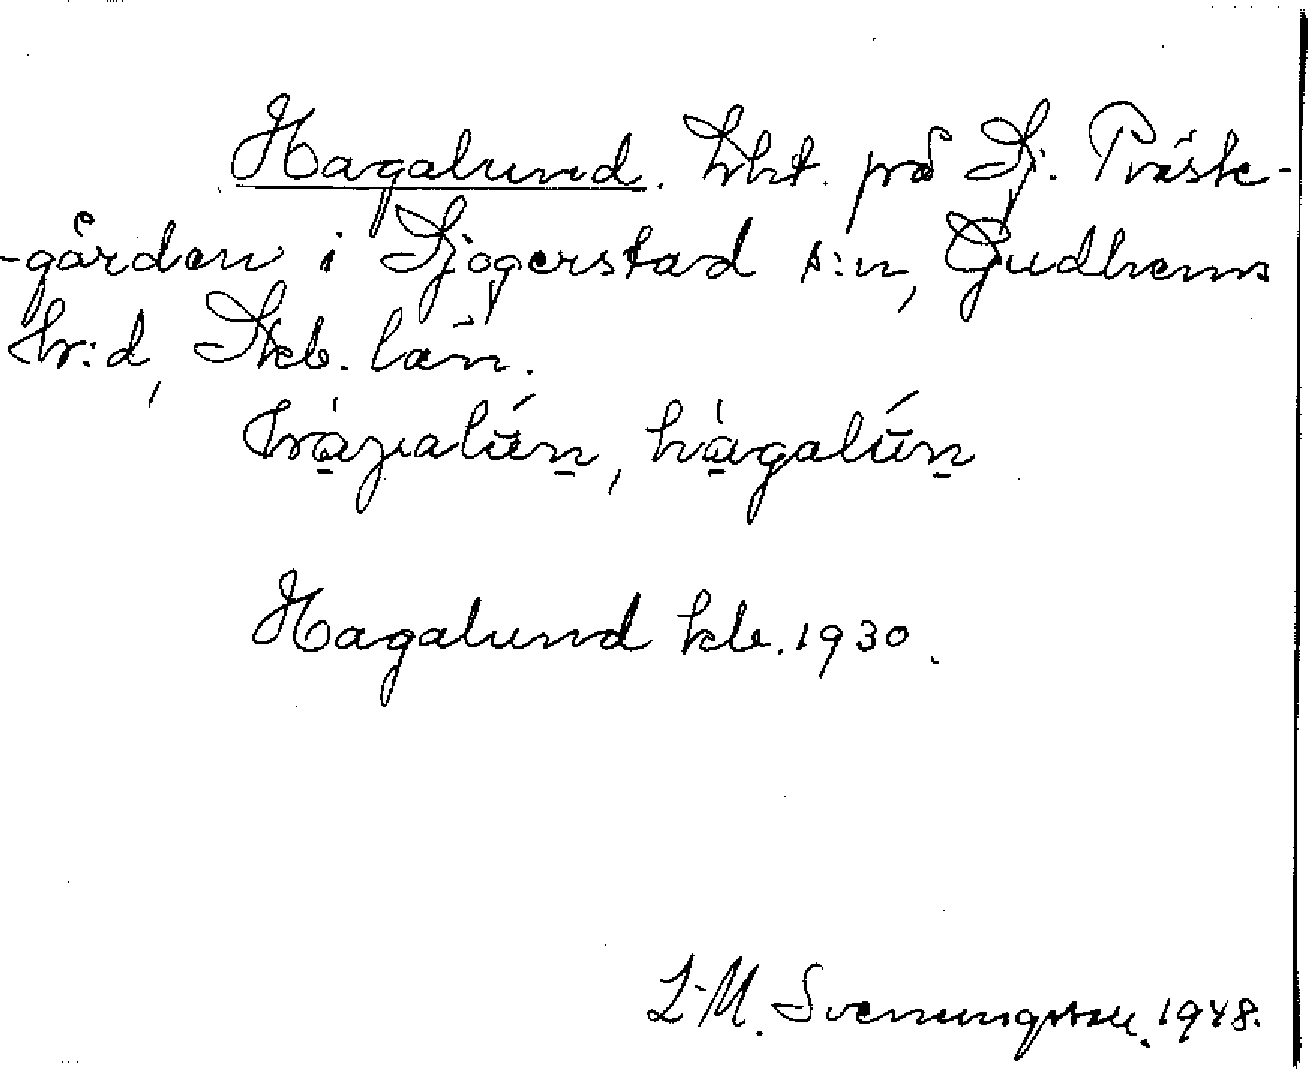 Hagalund. lht. på Sj. Präste-
-gården i Sjögerstad s:n, Gudhems
hr:d, Skb. län.
hàgalún, hàgalún
Hagalund kb. 1930.
L-M. Svenungsson. 1948.